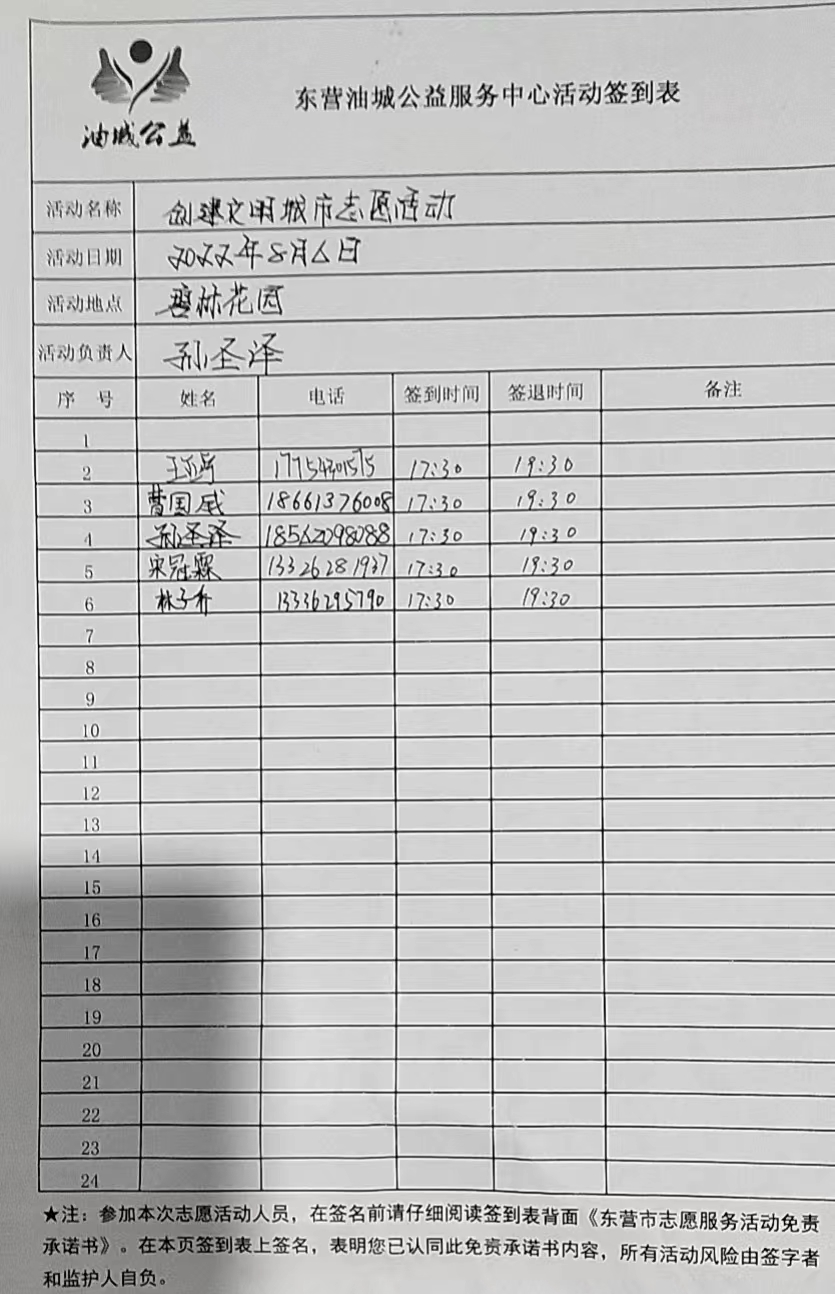 油城公益
东营油城公益服务中心活动签到表
活动名称 创建文明城市志愿活动
活动日期 2022年8月6日
活动地点 林花园
活动负责人 孙圣泽
序 号 姓名 电话 签到时间 签退时间 备注
1
2 17:30 19:30
3 曹国威 18661376008 17:30 19:30
4 孙圣泽 18562098088 17:30 19:30
5 宋冠霖 13326281937 17:30 19:30
6 林子乔 13336295790 17:30 19:30
7
8
9
10
11
12
13
14
15
16
17
18
19
20
21
22
23
24
★注：参加本次志愿活动人员，在签名前请仔细阅读签到表背面《东营市志愿服务活动免责
承诺书》。在本页签到表上签名，表明您已认同此免责承诺书内容，所有活动风险由签字者
和监护人自负。